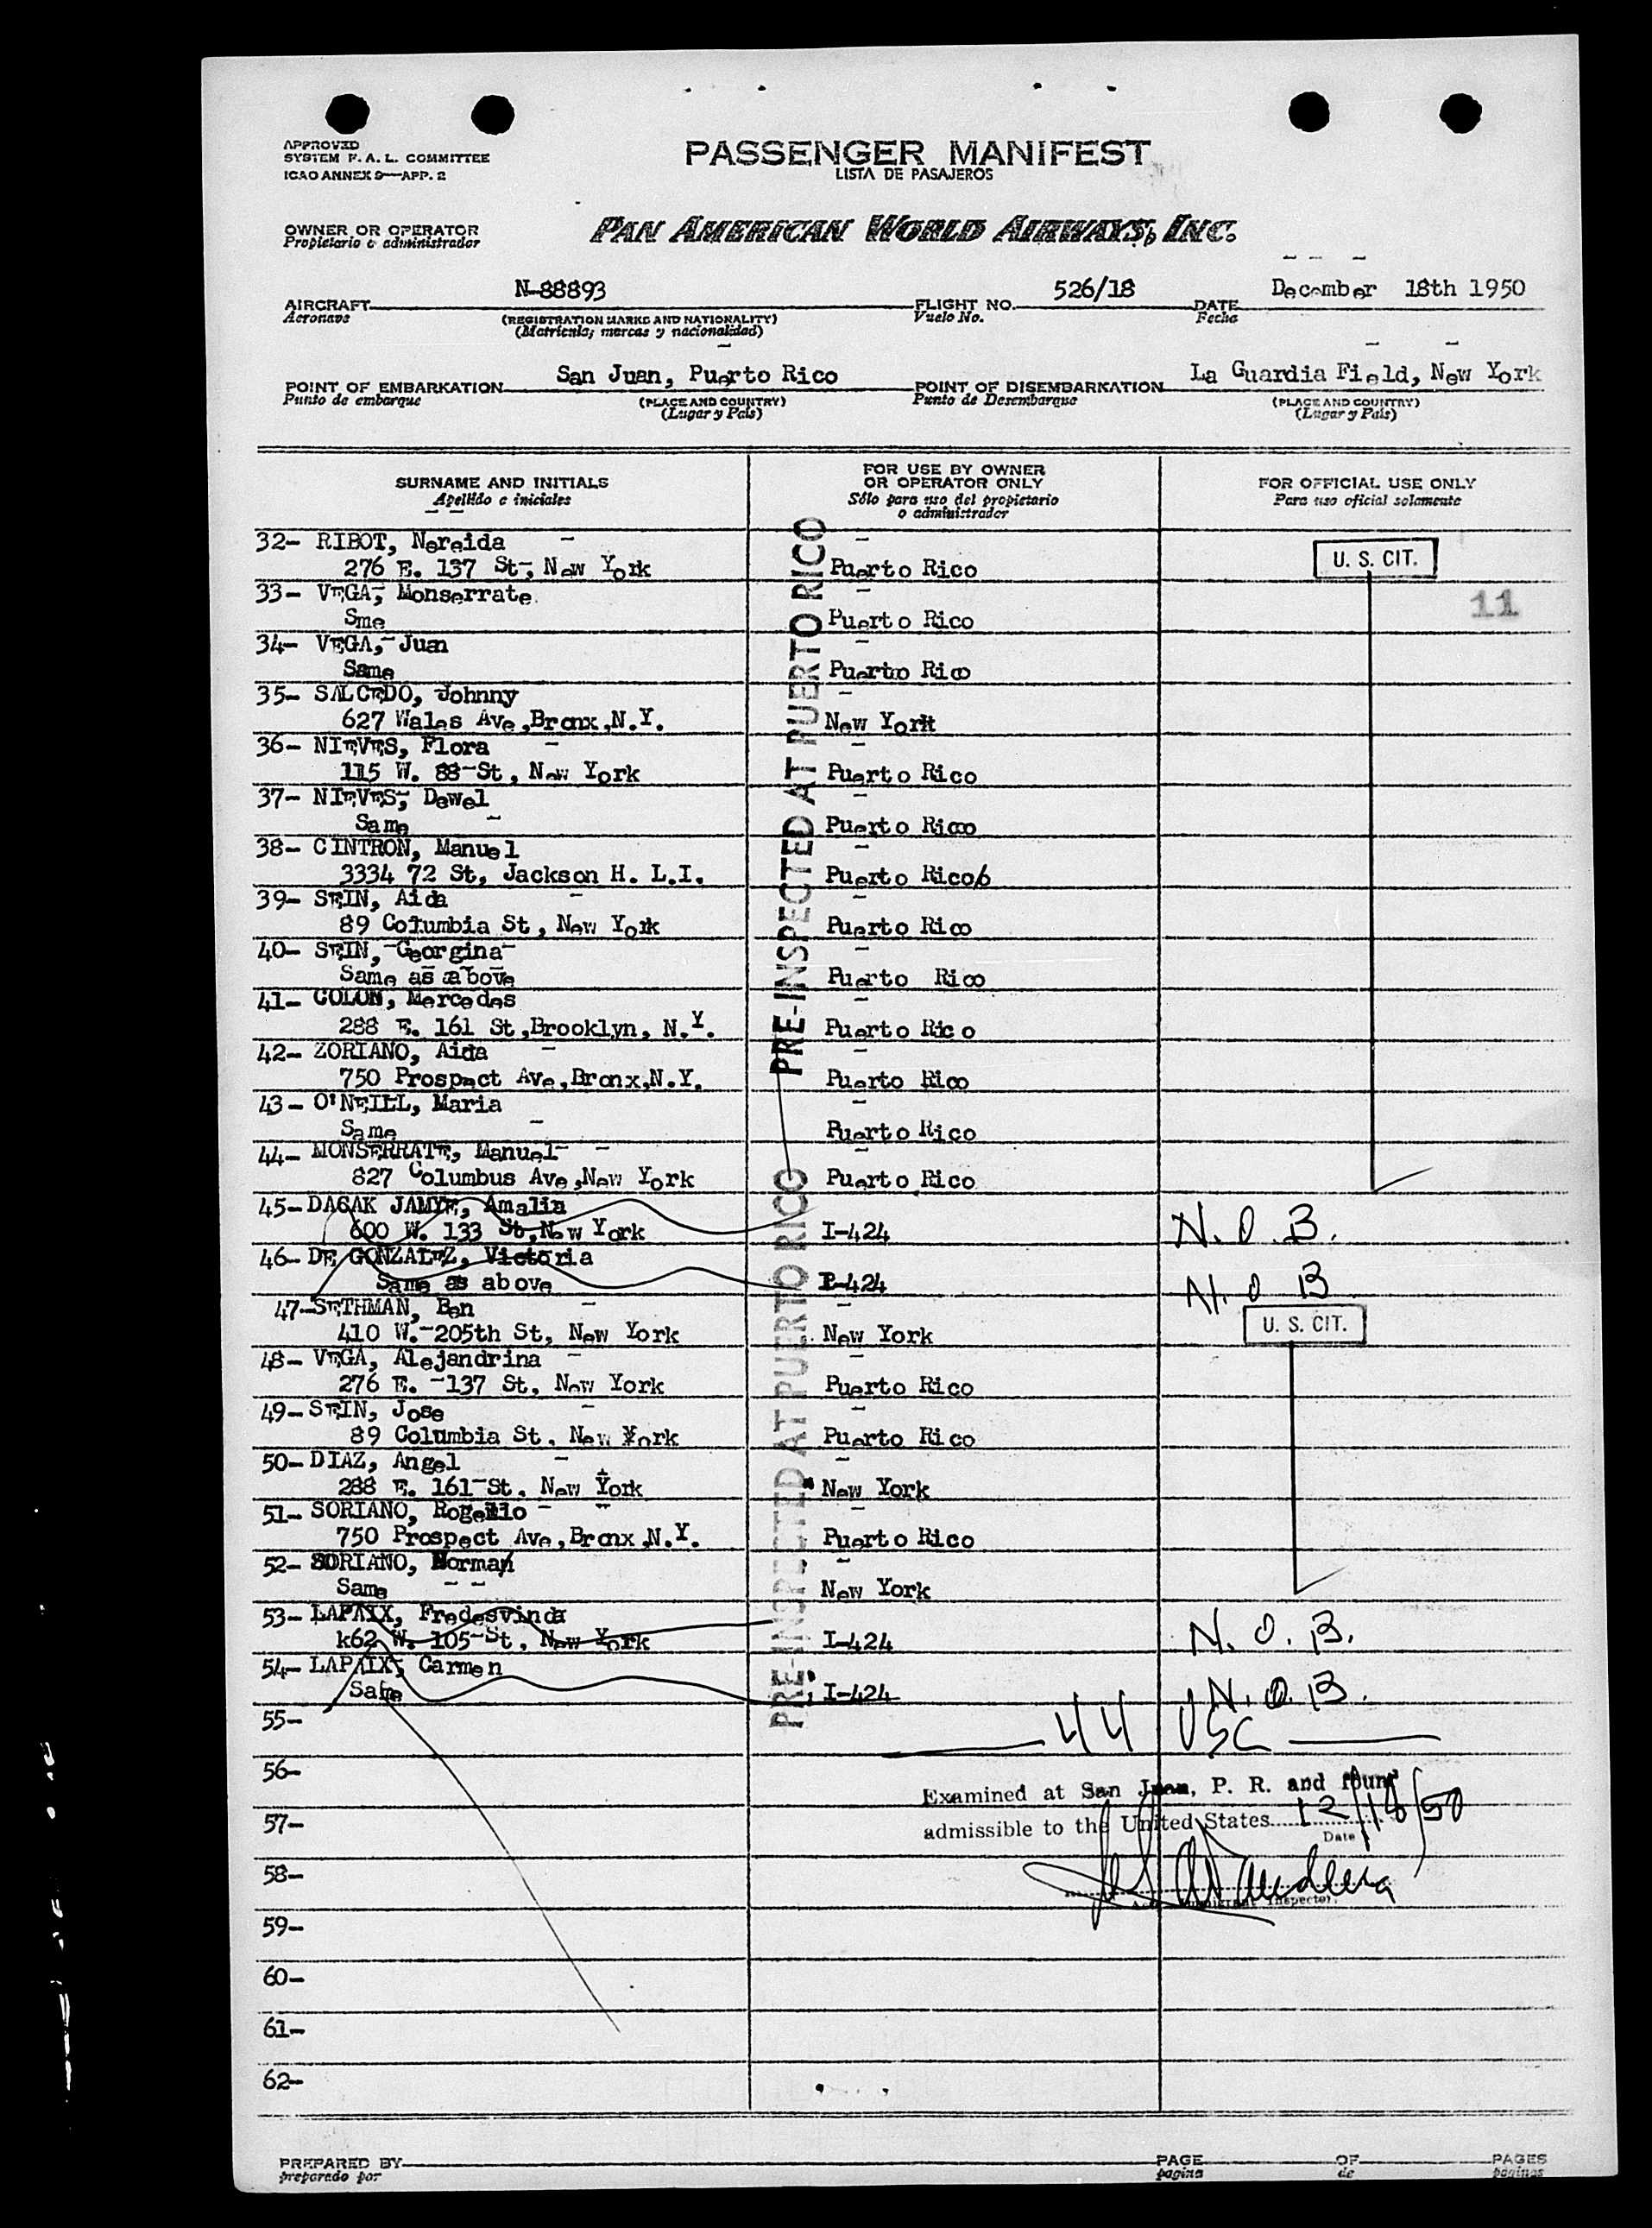 APPROVED
SYSTEM F. A. L. COMMITTEE
ICAO ANNEX 9—APP. 2
PASSENGER MANIFEST
LISTA DE PASAJEROS
OWNER OR OPERATOR
Propietario o administrador
PAN AMERICAN WORLD AIRWAYS, INC.
AIRCRAFT N-88893 FLIGHT NO. 526/18 DATE December 18th 1950
Aeronave (REGISTRATION MARKS AND NATIONALITY) Vuelo No. Fecha
(Matricula; marcas y nacionalidad)
POINT OF EMBARKATION San Juan, Puerto Rico POINT OF DISEMBARKATION La Guardia Field, New York
Punto de embarque (PLACE AND COUNTRY) Punto de Desembarque (PLACE AND COUNTRY)
(Lugar y País) (Lugar y País)
SURNAME AND INITIALS
Apellido e iniciales
FOR USE BY OWNER
OR OPERATOR ONLY
Sólo para uso del propietario
o administrador
FOR OFFICIAL USE ONLY
Para uso oficial solamente
PRE-INSPECTED AT PUERTO RICO
32- RIBOT, Nereida
276 E. 137 St-, New York Puerto Rico U. S. CIT.
33- VEGA, Monserrate 11
Sme Puerto Rico
34- VEGA, Juan
Same Puerto Rico
35- SALCEDO, Johnny
627 Wales Ave,Bronx,N.Y. New York
36- NIEVES, Flora
115 W. 88-St, New York Puerto Rico
37- NIEVES, Dewel
Same Puerto Rico
38- CINTRON, Manuel
3334 72 St, Jackson H. L.I. Puerto Rico6
39- SEIN, Aida
89 Columbia St, New York Puerto Rico
40- SEIN, Georgina
Same as above Puerto Rico
41- COLON, Mercedes
288 E. 161 St,Brooklyn, N.Y. Puerto Rico
42- ZORIANO, Aida
750 Prospect Ave,Bronx,N.Y. Puerto Rico
43- O'NEILL, Maria
Same Puerto Rico
44- MONSERRATE, Manuel
827 Columbus Ave,New York Puerto Rico
PRE-INSPECTED AT PUERTO RICO
45- DASAK JAMYE, Amalia
600 W. 133 St,New York I-424 N. O. B.
46- DE GONZALEZ, Victoria
Same as above I-424 N. O B
47-SETHMAN, Ben
410 W.-205th St, New York New York U. S. CIT.
48- VEGA, Alejandrina
276 E. -137 St, New York Puerto Rico
49- SEIN, Jose
89 Columbia St, New York Puerto Rico
50- DIAZ, Angel
288 E. 161-St, New York New York
51- SORIANO, Rogelio
750 Prospect Ave,Bronx,N.Y. Puerto Rico
52- SORIANO, Norman
Same New York
53- LAPAIX, Fredesvinda
k62 W. 105-St, New York I-424 N. O. B.
54- LAPAIX, Carmen
Same I-424 N. O. B.
55- 44 USC
56-
Examined at San Juan, P. R. and found
57- admissible to the United States 12/18/50
Date
58-
Inspector.
59-
60-
61-
62-
PREPARED BY PAGE OF PAGES
preparado por pagina de paginas